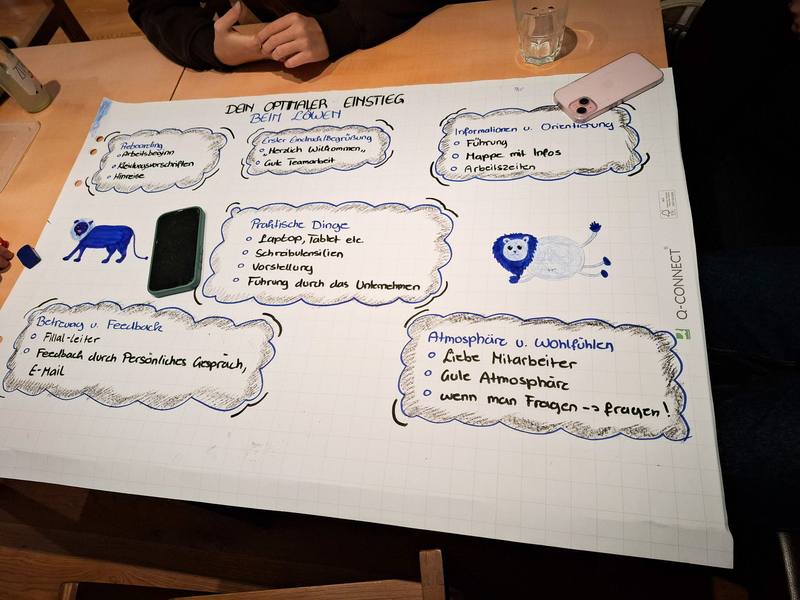 DEIN OPTIMALER EINSTIEG
BEIM LÖWEN
Preboarding
Arbeitsbeginn
Kleidungsvorschriften
Hinweise
Erster Eindruck/Begrüßung
"Herzlich Willkommen"
Gute Teamarbeit
Informationen u. Orientierung
Führung
Mappe mit Infos
Arbeitszeiten
Praktische Dinge
Laptop, Tablet etc.
Schreibutensilien
Vorstellung
Führung durch das Unternehmen
Betreuung u. Feedback
Filial-leiter
Feedback durch Persönliches Gespräch,
E-Mail
Atmosphäre u. Wohlfühlen
Liebe Mitarbeiter
Gute Atmosphäre
wenn man Fragen --> fragen!
Q-CONNECT